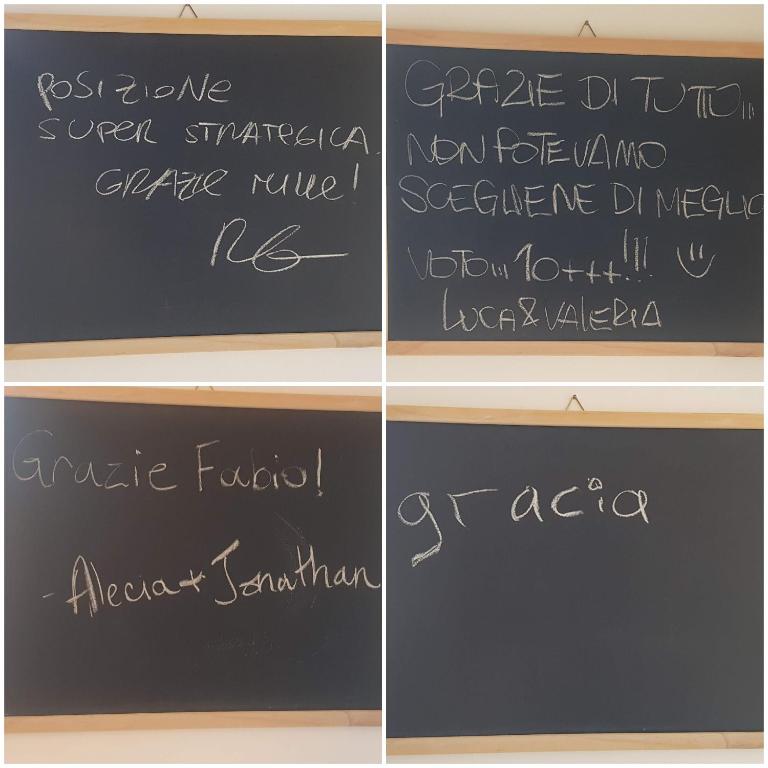 POSIZIONE
SUPER STRATEGICA.
GRAZIE MILLE!
RG
GRAZIE DI TUTTO...
NON POTEVAMO
SCEGLIENE DI MEGLIO
VOTO... 10+++!!! :)
LUCA & VALERIA
Grazie Fabio!
- Alecia + Jonathan
gracia